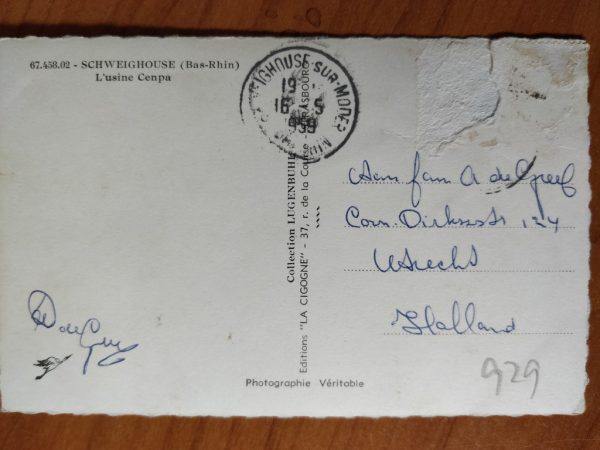 67.458.02 - SCHWEIGHOUSE (Bas-Rhin)
L'usine Cenpa
SCHWEIGHOUSE-SUR-MODER
19
16 - 5
Collection LUGENBUHL
Editions "LA CIGOGNE" - 37, r. de la Course - STRASBOURG
Aan fam A de Greef
Corn. Dirkszstr 124
Utrecht
Holland
A de Greef
929
Photographie Véritable